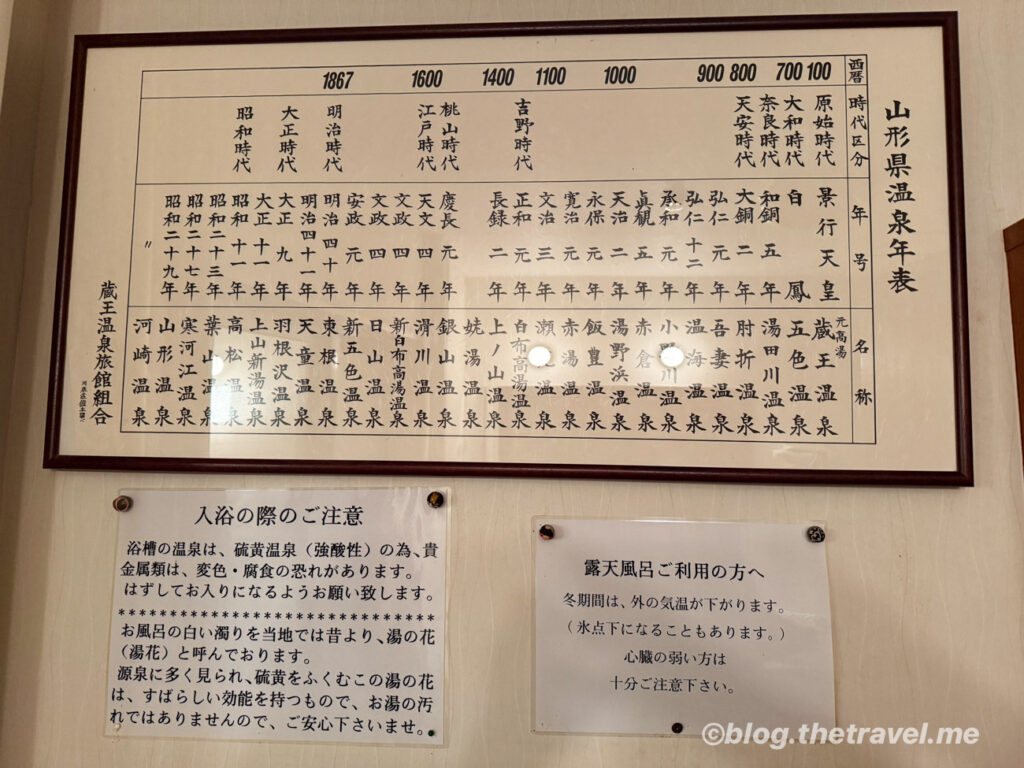 山形県温泉年表
西暦 100 700 800 900 1000 1100 1400 1600 1867
時代区分
原始時代
大和時代
奈良時代
天安時代
吉野時代
桃山時代
江戸時代
明治時代
大正時代
昭和時代
年号
景行天皇
白鳳
和銅五年
大銅二年
弘仁元年
弘仁十二年
承和元年
眞観五年
天治二年
永保元年
寛治元年
文治三年
正和元年
長録二年
慶長元年
天文四年
文政四年
文政四年
安政元年
明治四十年
明治四十一年
大正九年
大正十一年
昭和十一年
昭和二十三年
昭和二十七年
昭和二十九年
〃
名称
元高湯
蔵王温泉
五色温泉
湯田川温泉
肘折温泉
吾妻温泉
温海温泉
小野川温泉
赤倉温泉
湯野浜温泉
飯豊温泉
赤湯温泉
瀬温泉
白布高湯温泉
上ノ山温泉
姥湯温泉
銀山温泉
滑川温泉
新白布高湯温泉
日山温泉
新五色温泉
東根温泉
天童温泉
羽根沢温泉
上山新湯温泉
高松温泉
葉山温泉
寒河江温泉
山形温泉
河崎温泉
蔵王温泉旅館組合
入浴の際のご注意
浴槽の温泉は、硫黄温泉（強酸性）の為、貴
金属類は、変色・腐食の恐れがあります。
はずしてお入りになるようお願い致します。
********************************
お風呂の白い濁りを当地では昔より、湯の花
（湯花）と呼んでおります。
源泉に多く見られ、硫黄をふくむこの湯の花
は、すばらしい効能を持つもので、お湯の汚
れではありませんので、ご安心下さいませ。
露天風呂ご利用の方へ
冬期間は、外の気温が下がります。
（氷点下になることもあります。）
心臓の弱い方は
十分ご注意下さい。
©blog.thetravel.me